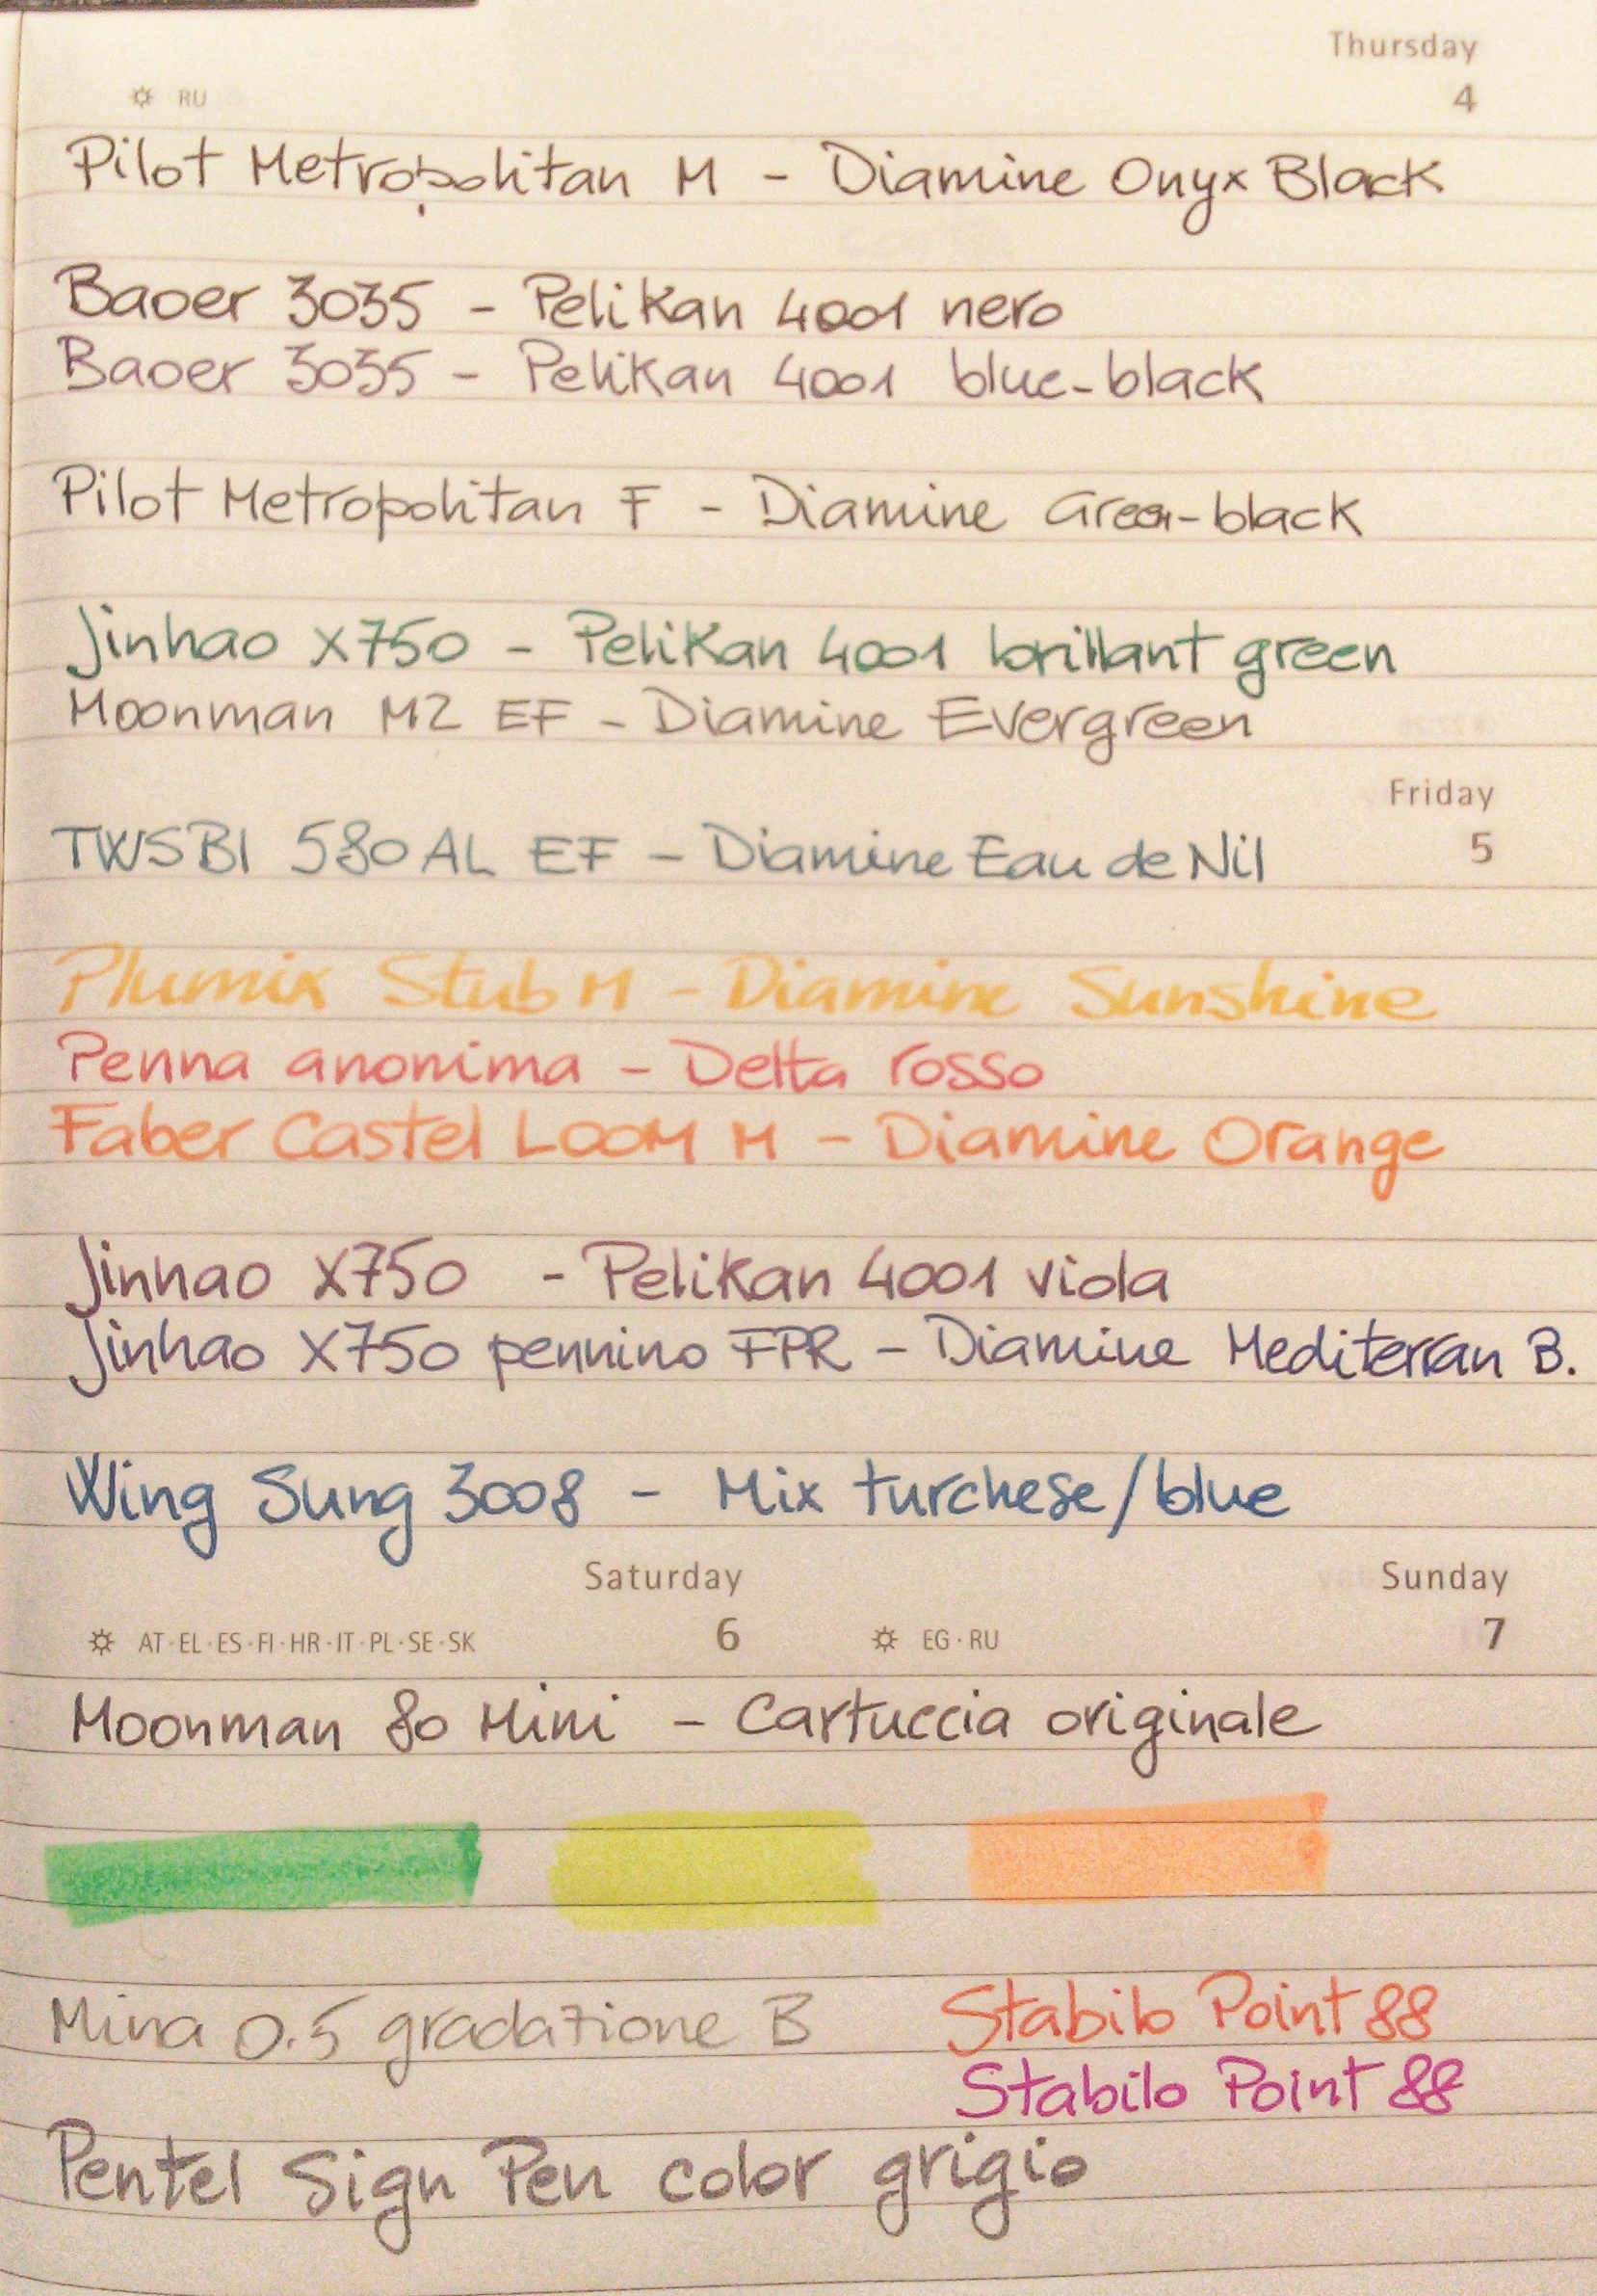 Thursday
RU
4
Pilot Metropolitan M - Diamine Onyx Black
Baoer 3035 - Pelikan 4001 nero
Baoer 3035 - Pelikan 4001 blue-black
Pilot Metropolitan F - Diamine Green-black
Jinhao X750 - Pelikan 4001 brillant green
Moonman M2 EF - Diamine Evergreen
Friday
5
TWSBI 580 AL EF - Diamine Eau de Nil
Plumix Stub M - Diamine Sunshine
Penna anonima - Delta rosso
Faber Castel LOOM M - Diamine Orange
Jinhao X750 - Pelikan 4001 viola
Jinhao X750 pennino FPR - Diamine Mediterran B.
Wing Sung 3008 - Mix turchese/blue
Saturday
Sunday
AT·EL·ES·FI·HR·IT·PL·SE·SK
6
EG·RU
7
Moonman 80 Mini - Cartuccia originale
Mina 0.5 gradazione B
Stabilo Point 88
Stabilo Point 88
Pentel Sign Pen color grigio